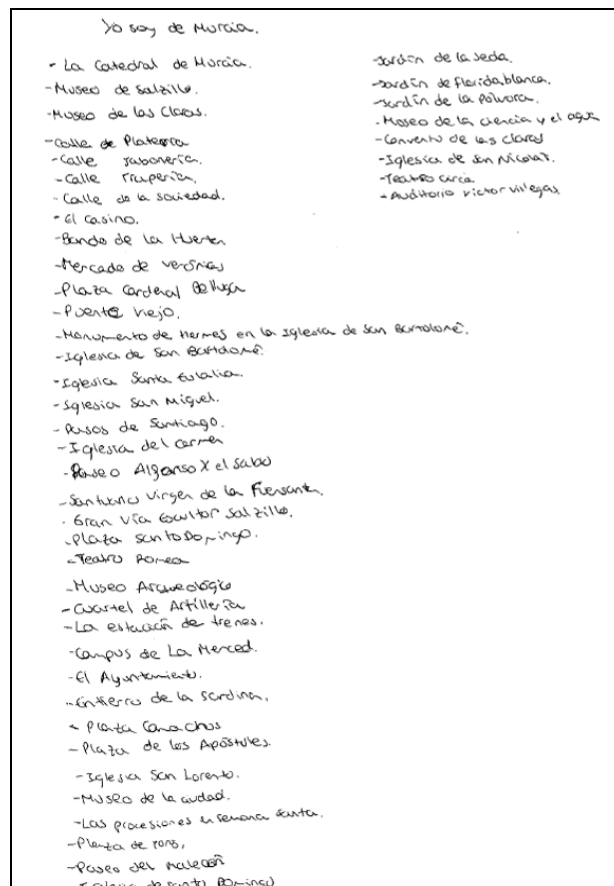 Yo soy de Murcia.
- La Catedral de Murcia.
- Museo de Salzillo.
- Museo de las Claras.
- Calle de Platería
- Calle Jabonería.
- Calle Trapería.
- Calle de la sociedad.
- El Casino.
- Bando de la Huerta
- Mercado de Verónicas
- Plaza Cardenal Belluga
- Puente viejo.
- Monumento de Hermes en la Iglesia de San Bartolomé.
- Iglesia de San Bartolomé.
- Iglesia Santa Eulalia.
- Iglesia San Miguel.
- Pasos de Santiago.
- Iglesia del Carmen
- Paseo Alfonso X el Sabio
- Santuario Virgen de la Fuensanta.
- Gran Vía Escultor Salzillo.
- Plaza Santo Domingo.
- Teatro Romea
- Museo Arqueológico
- Cuartel de Artillería
- La estación de trenes.
- Campus de La Merced.
- El Ayuntamiento.
- Entierro de la Sardina.
- Plaza Camachos
- Plaza de los Apóstoles.
- Iglesia San Lorenzo.
- Museo de la ciudad.
- Las procesiones en semana santa.
- Plaza de toros.
- Paseo del Malecón
- Iglesia de santo Domingo
- Jardín de la Seda.
- Jardín de Floridablanca.
- Jardín de la Pólvora.
- Museo de la ciencia y el agua
- Convento de las Claras
- Iglesia de San Nicolás.
- Teatro circo.
- Auditorio Victor Villegas